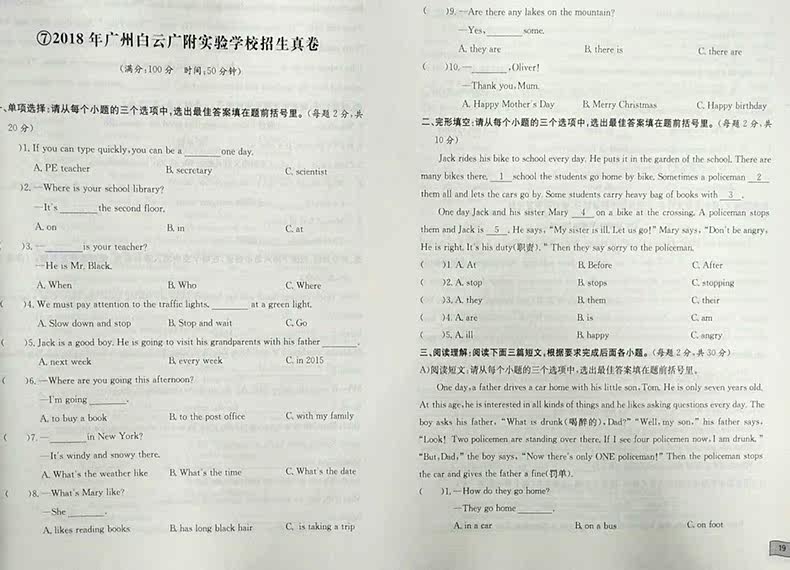 ⑦2018年广州白云广附实验学校招生真卷
(满分:100分 时间:50分钟)
一、单项选择:请从每个小题的三个选项中,选出最佳答案填在题前括号里。(每题2分,共
20分)
( )1. If you can type quickly, you can be a ______ one day.
A. PE teacher B. secretary C. scientist
( )2. —Where is your school library?
—It's ______ the second floor.
A. on B. in C. at
( )3. —______ is your teacher?
—He is Mr. Black.
A. When B. Who C. Where
( )4. We must pay attention to the traffic lights. ______ at a green light.
A. Slow down and stop B. Stop and wait C. Go
( )5. Jack is a good boy. He is going to visit his grandparents with his father ______.
A. next week B. every week C. in 2015
( )6. —Where are you going this afternoon?
—I'm going ______.
A. to buy a book B. to the post office C. with my family
( )7. —______ in New York?
—It's windy and snowy there.
A. What's the weather like B. What's the time C. What's the date
( )8. —What's Mary like?
—She ______.
A. likes reading books B. has long black hair C. is taking a trip
( )9. —Are there any lakes on the mountain?
—Yes, ______ some.
A. they are B. there is C. there are
( )10. —______, Oliver!
—Thank you, Mum.
A. Happy Mother's Day B. Merry Christmas C. Happy birthday
二、完形填空:请从每个小题的三个选项中,选出最佳答案填在题前括号里。(每题2分,共
10分)
Jack rides his bike to school every day. He puts it in the garden of the school. There are
many bikes there. 1 school the students go home by bike. Sometimes a policeman 2
them all and lets the cars go by. Some students carry heavy bag of books with 3 .
One day Jack and his sister Mary 4 on a bike at the crossing. A policeman stops
them and Jack is 5 . He says, "My sister is ill. Let us go!" Mary says, "Don't be angry,
He is right. It's his duty(职责)." Then they say sorry to the policeman.
( )1. A. At B. Before C. After
( )2. A. stop B. stops C. stopping
( )3. A. they B. them C. their
( )4. A. are B. is C. am
( )5. A. ill B. happy C. angry
三、阅读理解:阅读下面三篇短文,根据要求完成后面各小题。(每题2分,共30分)
A)阅读短文,请从每个小题的三个选项中,选出最佳答案填在题前括号里。
One day, a father drives a car home with his little son, Tom. He is only seven years old.
At this age, he is interested in all kinds of things and he likes asking questions every day. The
boy asks his father, "What is drunk(喝醉的), Dad?" "Well, my son," his father says,
"Look! Two policemen are standing over there. If I see four policemen now, I am drunk."
"But, Dad," the boy says, "Now there's only ONE policeman!" Then the policeman stops
the car and gives the father a fine(罚单).
( )1. —How do they go home?
—They go home ______.
A. in a car B. on a bus C. on foot
19